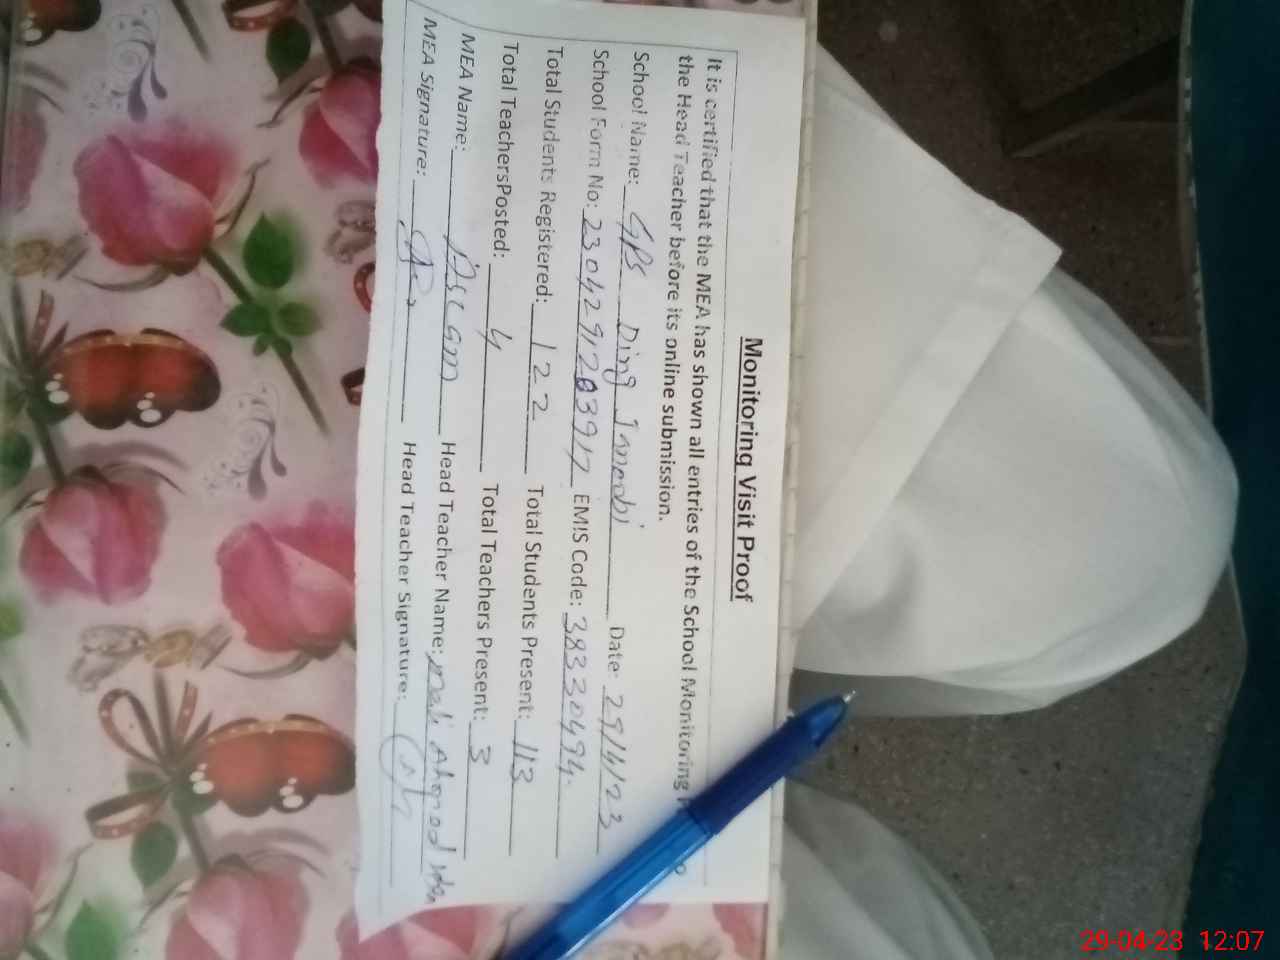 Monitoring Visit Proof
It is certified that the MEA has shown all entries of the School Monitoring
the Head Teacher before its online submission.
School Name: GPS Ding Date: 29/4/23
School Form No: 2304291203917 EMIS Code: 38330494
Total Students Registered: 122 Total Students Present: 113
Total TeachersPosted: 4 Total Teachers Present: 3
MEA Name: Aslam Head Teacher Name: Ahmed
MEA Signature: Head Teacher Signature:
29-04-23 12:07